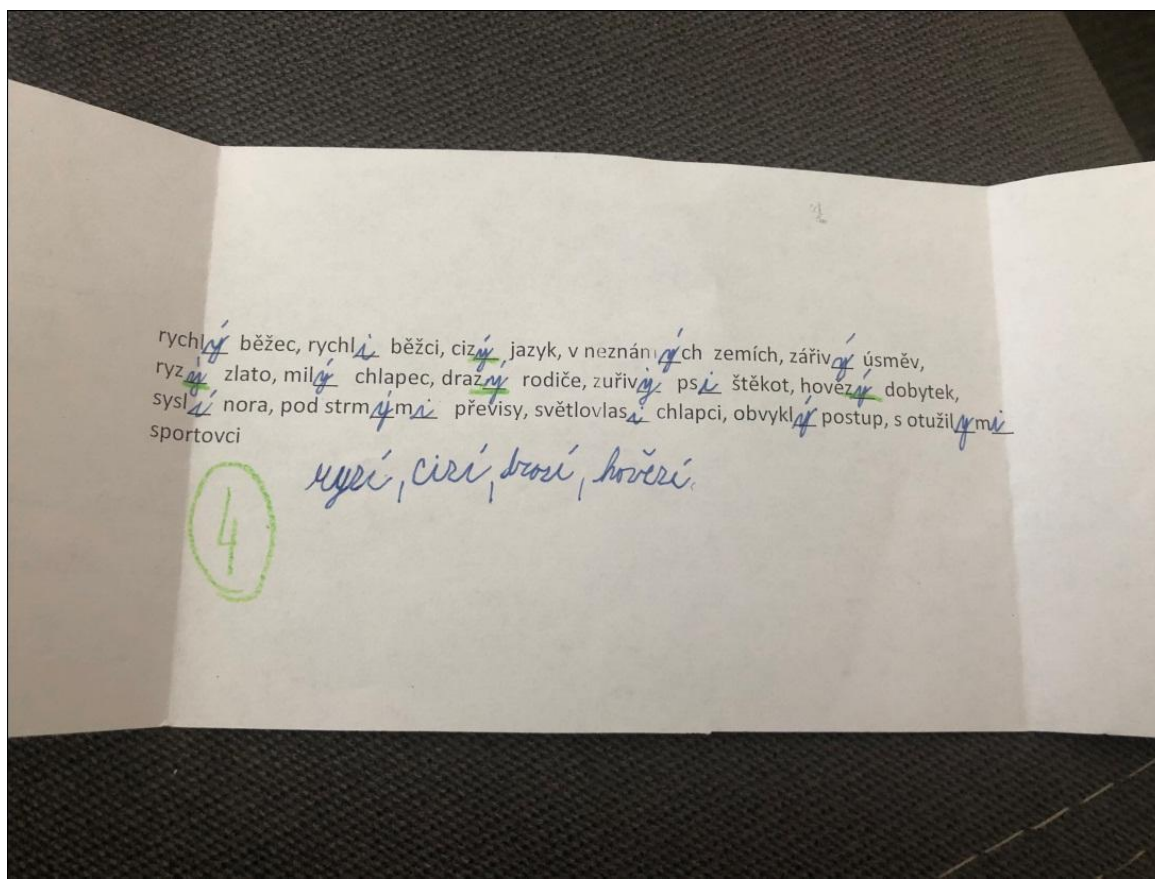 rychlý běžec, rychlí běžci, cizý jazyk, v neznámých zemích, zářivý úsměv,
ryzý zlato, milý chlapec, drazý rodiče, zuřivý psí štěkot, hovězý dobytek,
syslí nora, pod strmými převisy, světlovlasí chlapci, obvyklý postup, s otužilými
sportovci
ryzí, cizí, drazí, hovězí.
4